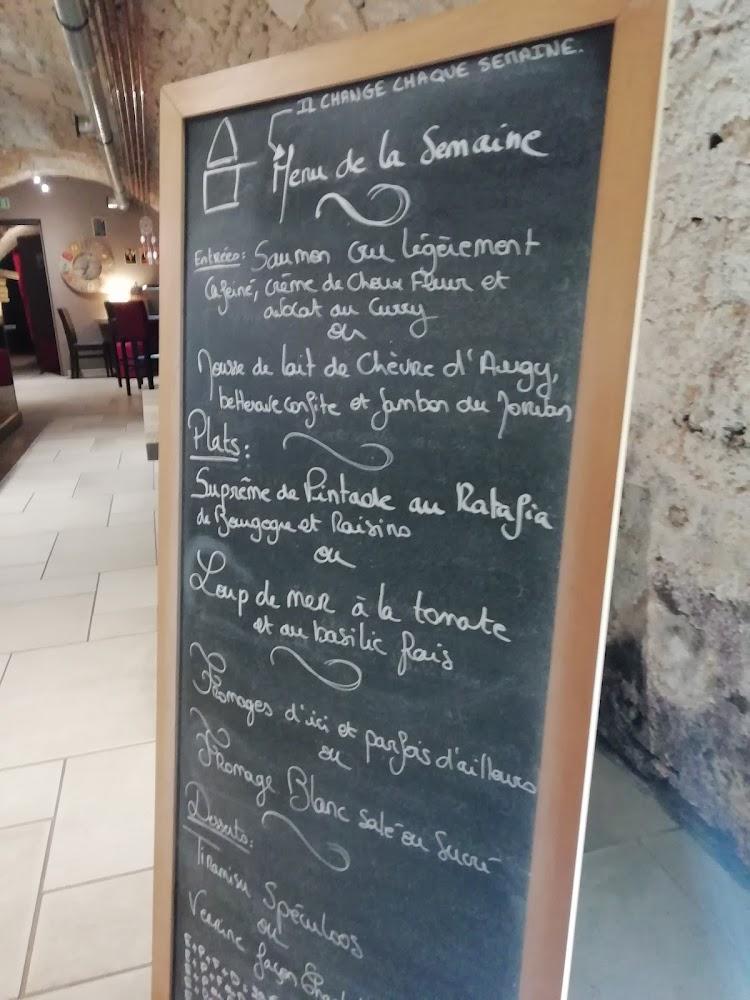 IL CHANGE CHAQUE SEMAINE.
Menu de la Semaine
Entrées: Saumon cru légèrement
caféiné, crème de Choux Fleur et
avocat au Curry
ou
Mousse de lait de Chèvre d'Augy,
betterave confite et Jambon du Morvan
Plats:
Suprême de Pintade au Ratafia
de Bourgogne et Raisins
ou
Loup de mer à la tomate
et au basilic frais
Fromages d'ici et parfois d'ailleurs
ou
Fromage Blanc salé ou Sucré
Desserts:
Tiramisu Spéculoos
ou
Verrine façon